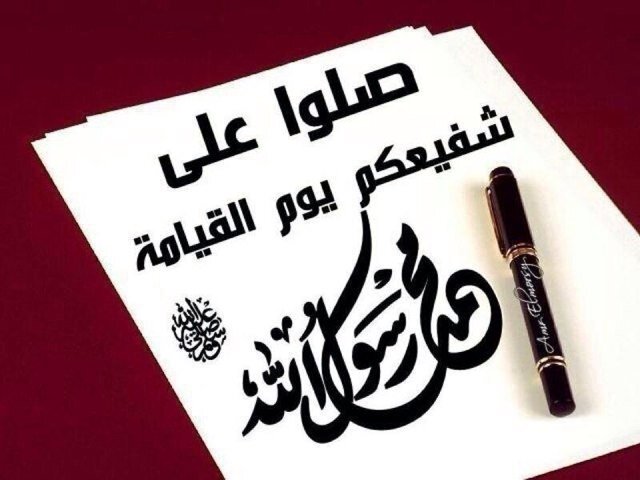 صلوا على
شفيعكم يوم القيامة
محمد رسول الله
ﷺ
Amr Elmorsy